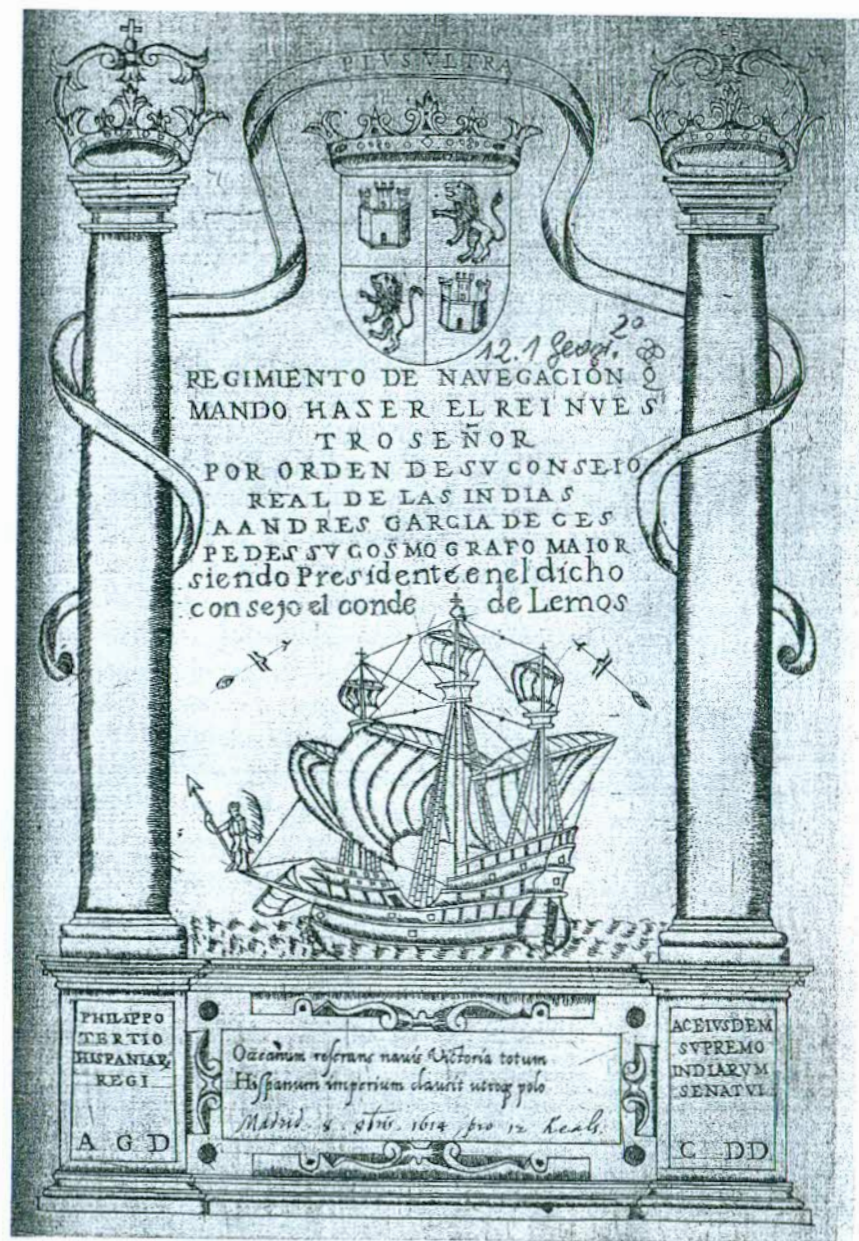 PLVS VLTRA
12.1 Geogr. 2º
REGIMIENTO DE NAVEGACIÓN Q
MANDO HAZER EL REI NVES
TRO SEÑOR
POR ORDEN DE SV CONSEIO
REAL DE LAS INDIAS
A ANDRES GARCIA DE CES
PEDES SV COSMOGRAFO MAIOR
siendo Presidente enel dicho
consejo el conde de Lemos
PHILIPPO
TERTIO
HISPANIAR
REGI
A G D
Occeanum reserans nauis Victoria totum
Hispanum imperium clausit utroqꝫ polo
Madrid. 8. 1614 pro 12 Reals.
AC EIVSDEM
SVPREMO
INDIARVM
SENATVI
C DD